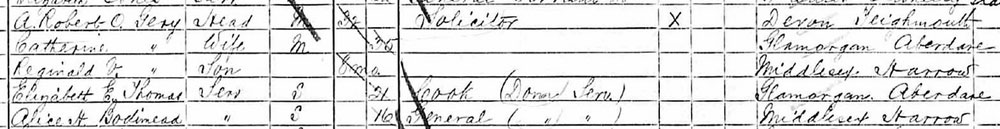 A. Robert O. Tery Head M 32 Solicitor X Devon Teighmouth
Catharine " Wife M 26 Glamorgan Aberdare
Reginald V. " Son 6mo Middlesex Harrow
Elizabeth E. Thomas Serv S 21 Cook (Dom Serv.) Glamorgan Aberdare
Alice H. Bodimead " S 16 General ( " " ) Middlesex Harrow